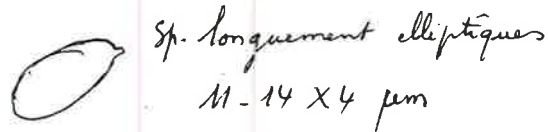 Sp. longuement elliptiques
11-14 X 4 µm